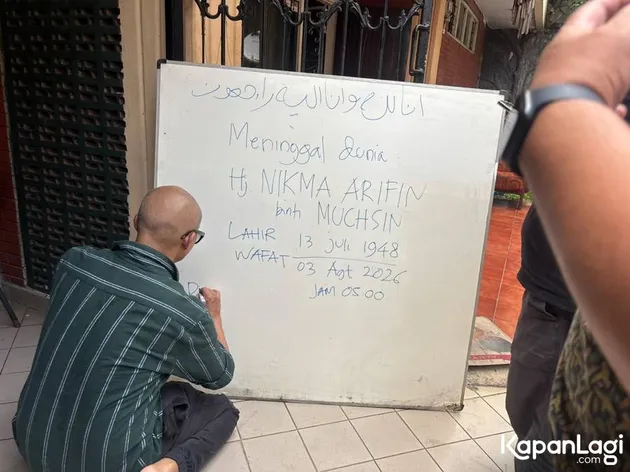 انا لله وانا اليه راجعون
Meninggal dunia
Hj NIKMA ARIFIN
binti MUCHSIN
LAHIR 13 juli 1948
WAFAT 03 Agt 2026
JAM 05.00
D
KapanLagi
.com